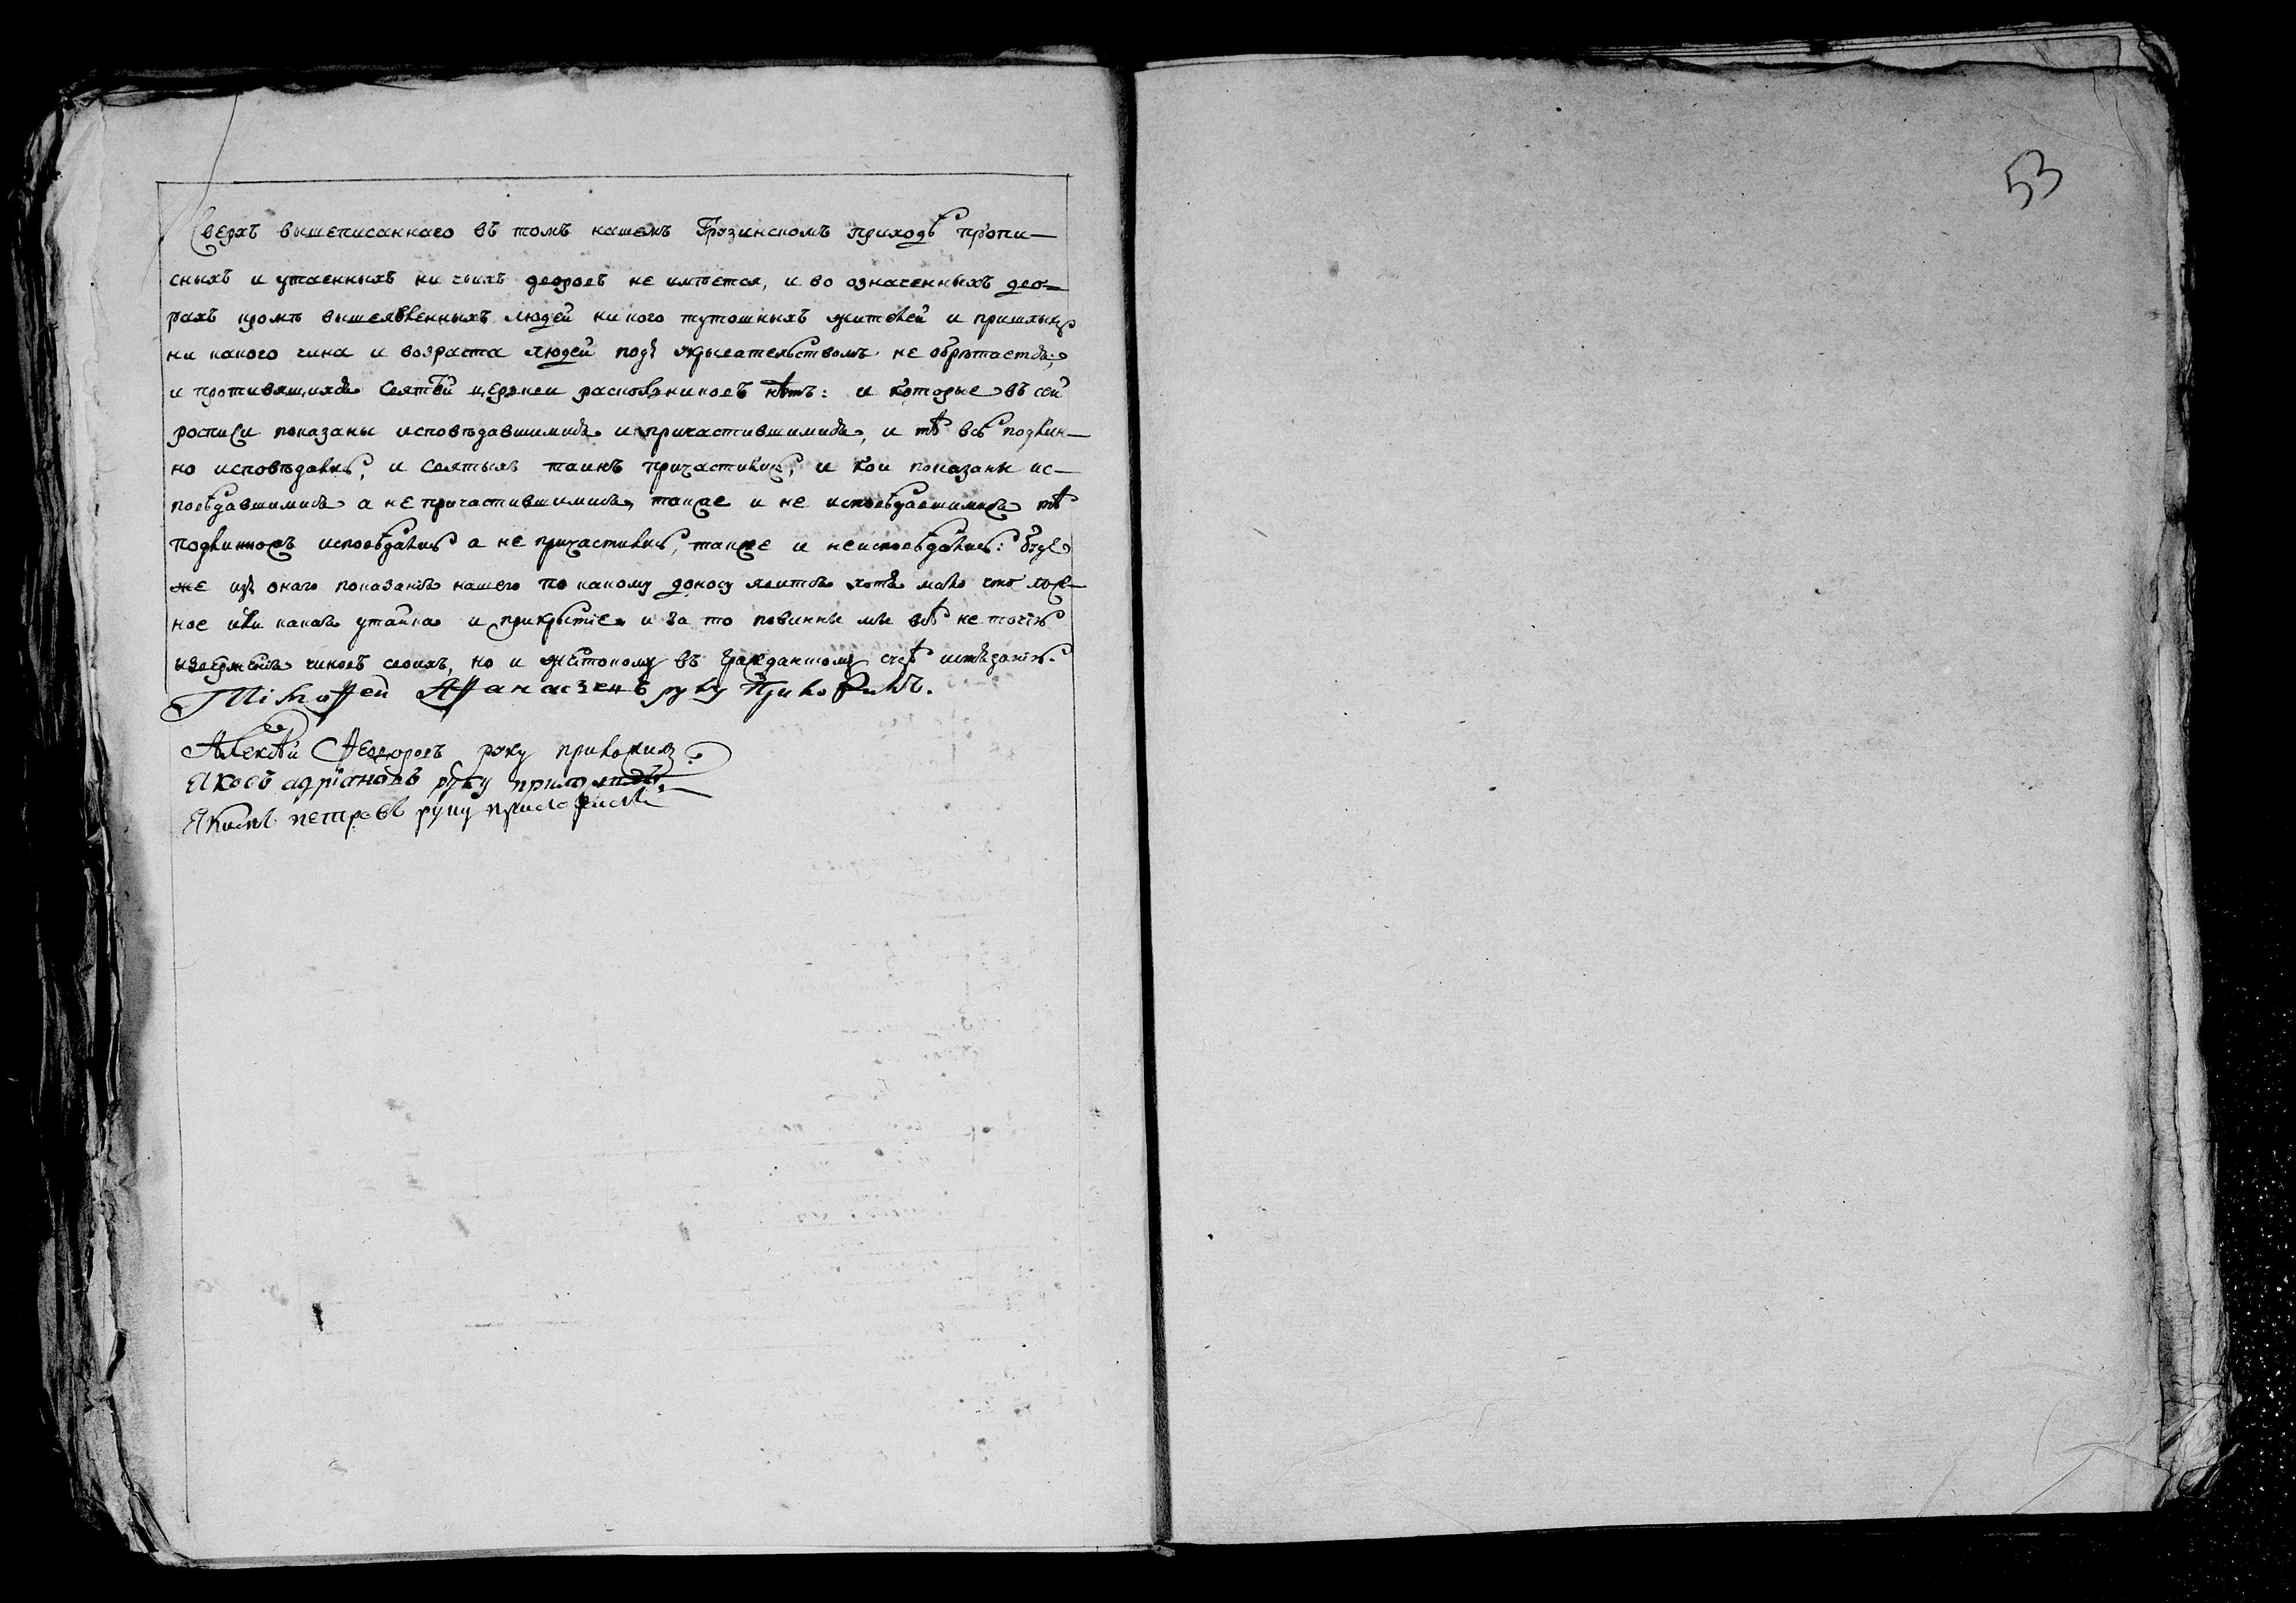 53
Сверхъ вышеписаннаго въ томъ нашемъ Грузинскомъ приходѣ пропи—
сныхъ и утаенныхъ ни чьихъ дворовъ не имѣется, и во означенныхъ дво—
рахъ кромѣ вышеявленныхъ людей никого тутошныхъ жителей и пришлыхъ
ни какого чина и возраста людей подъ укрывательствомъ не обрѣтается;
и противящихся святѣй церкви раскольниковъ нѣтъ: и которые въ сей
росписи показаны исповѣдавшимися и причастившимися, и тѣ всѣ подлин—
но исповѣдались, и святыхъ таинъ причастились, и кои показаны ис—
повѣдавшимися а не причастившимися, также и не исповѣдавшимися тѣ
подлинножъ исповѣдались а не причастились, также и неисповѣдались: буде
же изъ онаго показанія нашего по какому доносу явится хотя мало что лож—
ное или какая утайка и прикрытіе и за то повинны мы всѣ не точію
изверженія чиновъ своихъ, но и жестокому въ гражданскомъ судѣ истязанію.
Тімоѳей Аѳанасіевъ руку приложилъ.
Алексѣй Ѳеодоровъ руку приложилъ
Яковъ адріановъ руку приложилъ
Якимъ петровъ руку приложилъ